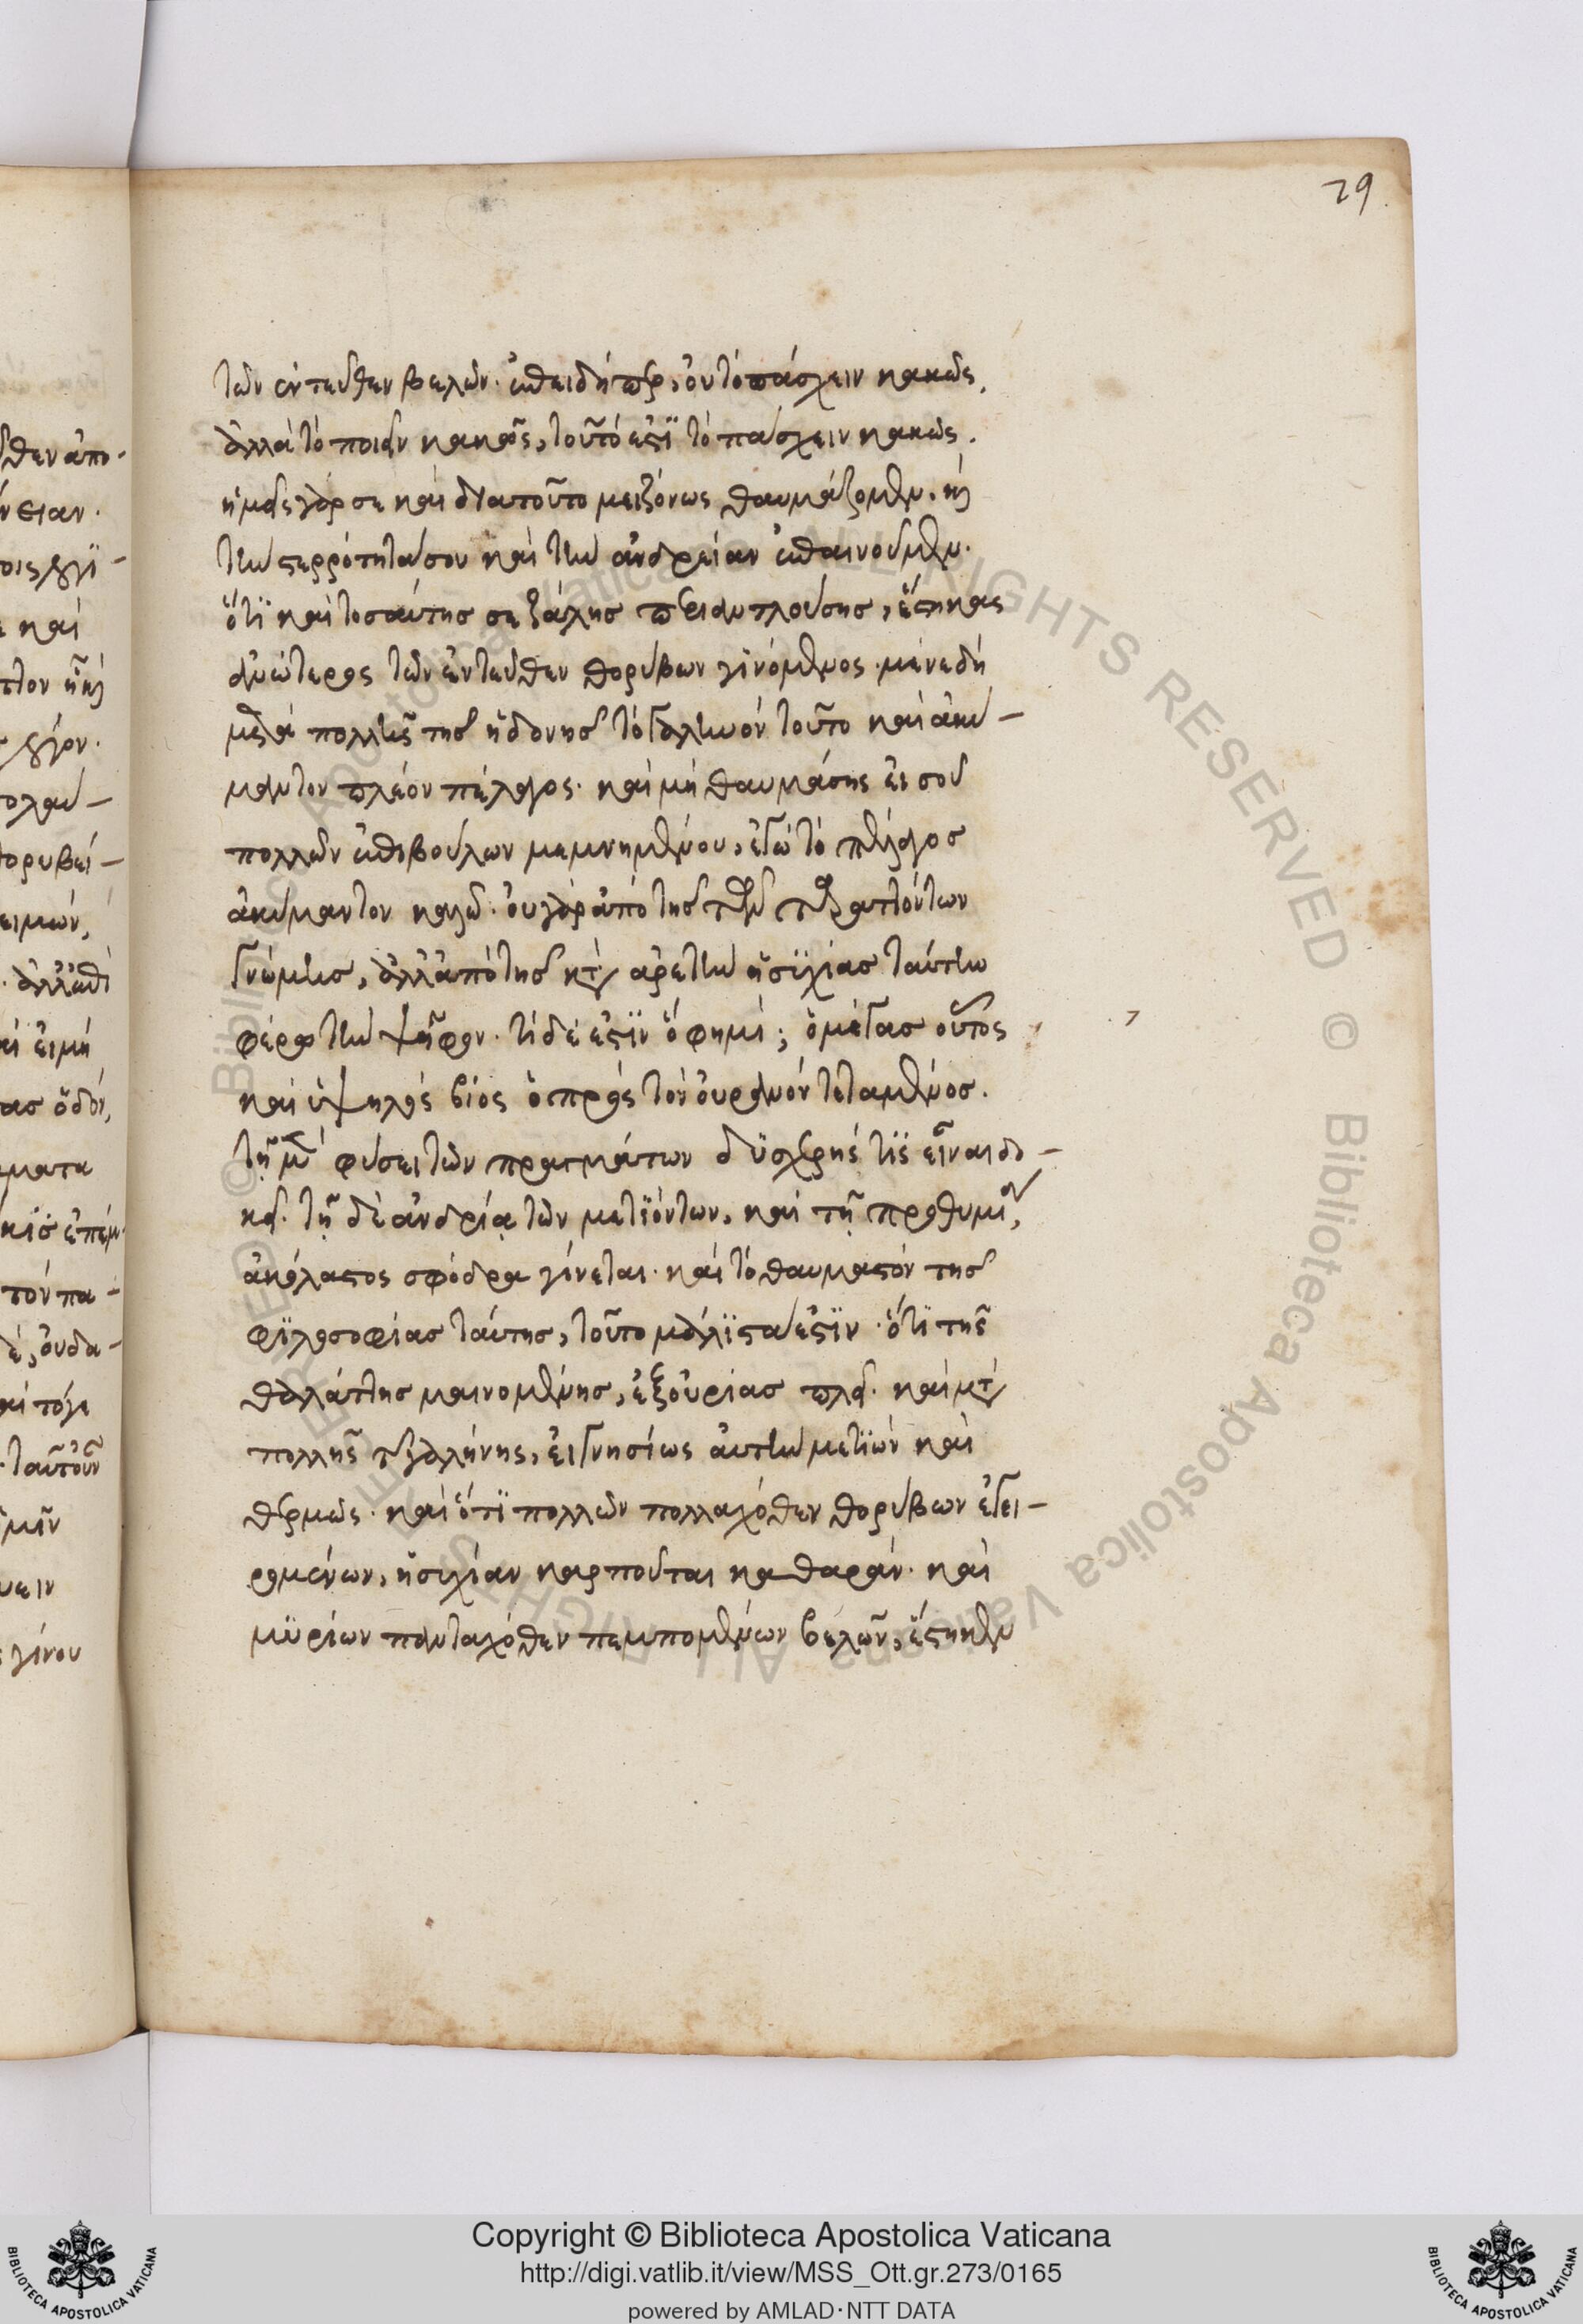 29
τῶν ἐντεῦθεν βελῶν. ἐπειδήπερ, οὐ τὸ πάσχειν κακῶς,
ἀλλὰ τὸ ποιεῖν κακῶς, τοῦτό ἐστϊ τὸ πάσχειν κακῶς.
ἡμεῖς γάρ σε καὶ διατοῦτο μειζόνως θαυμάζομεν. καὶ
τὴν στερρότητά σου καὶ τὴν ἀνδρείαν ἐπαινοῦμεν.
ὅτϊ καὶ τοσαύτης σε ζάλης περιαντλούσης, ἕστηκας
ἀνώτερος τῶν ἐντεῦθεν θορύβων γινόμενος. μένε δὴ
μετὰ πολλῆς τῆς ἡδονῆς τὸ γαληνὸν τοῦτο καὶ ἀκύ-
μαντον πλέον πέλαγος. καὶ μὴ θαυμάσης εἰ σοῦ
πολλῶν ἐπιβούλων μεμνημένου, ἐγὼ τὸ πέλαγος
ἀκύμαντον καλῶ. οὐ γὰρ ἀπὸ τῆς τῶν ταραττόντων
γνώμης, ἀλλ' ἀπὸ τῆς κατ' ἀρετὴν ἡσϋχίας ταύτην
φέρω τὴν ψῆφον. τί δέ ἐστϊν ὅ φημι; ὁ μέγας οὗτος
καὶ ὑψηλὸς βίος ὁ πρὸς τὸν οὐρανὸν τεταμένος.
τῇ μὲν φύσει τῶν πραγμάτων δϋσχερής τϊς εἶναι δο-
κεῖ. τῇ δὲ ἀνδρίᾳ τῶν μετϊόντων, καὶ τῇ προθυμίᾳ,
ἀκόλαστος σφόδρα γίνεται. καὶ τὸ θαυμαστὸν τῆς
φϊλοσοφίας ταύτης, τοῦτο μάλϊστα ἐστϊν. ὅτϊ τῆς
θαλάττης μαινομένης, ἐξουρίας πλεῖ. καὶ μετὰ
πολλῆς τῆς γαλήνης, εἰ γνησίως αὐτὴν μετϊὼν καὶ
θερμῶς. καὶ ὅτϊ πολλῶν πολλαχόθεν θορύβων ἐγει-
ρομένων, ἡσυχίαν καρποῦται καθαράν. καὶ
μϋρίων πανταχόθεν πεμπομένων βελῶν, ἕστηκεν
Copyright © Biblioteca Apostolica Vaticana
http://digi.vatlib.it/view/MSS_Ott.gr.273/0165
powered by AMLAD·NTT DATA